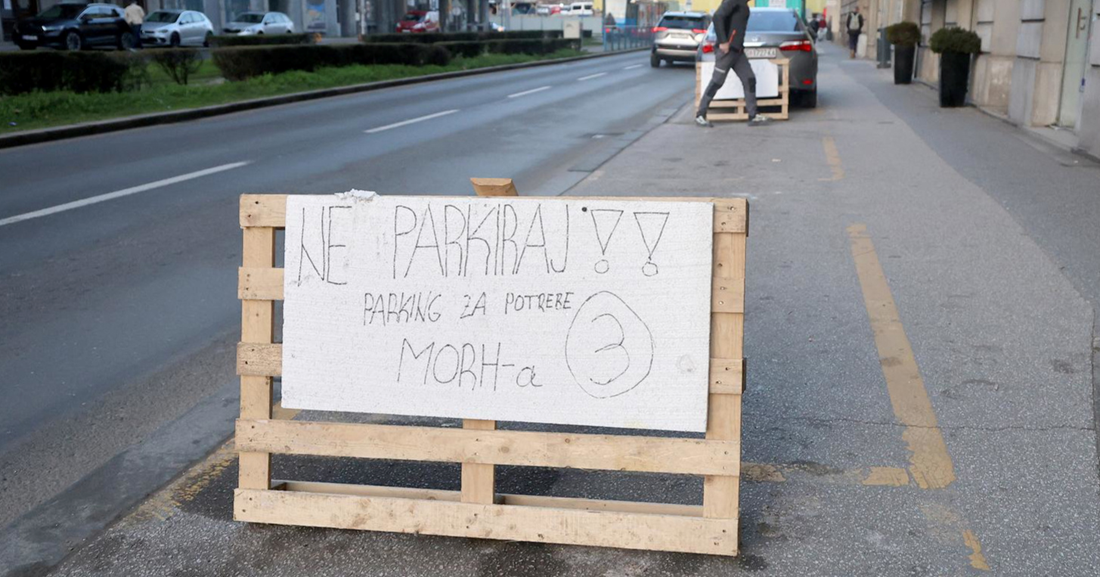 NE PARKIRAJ!!
PARKING ZA POTREBE
MORH-a 3